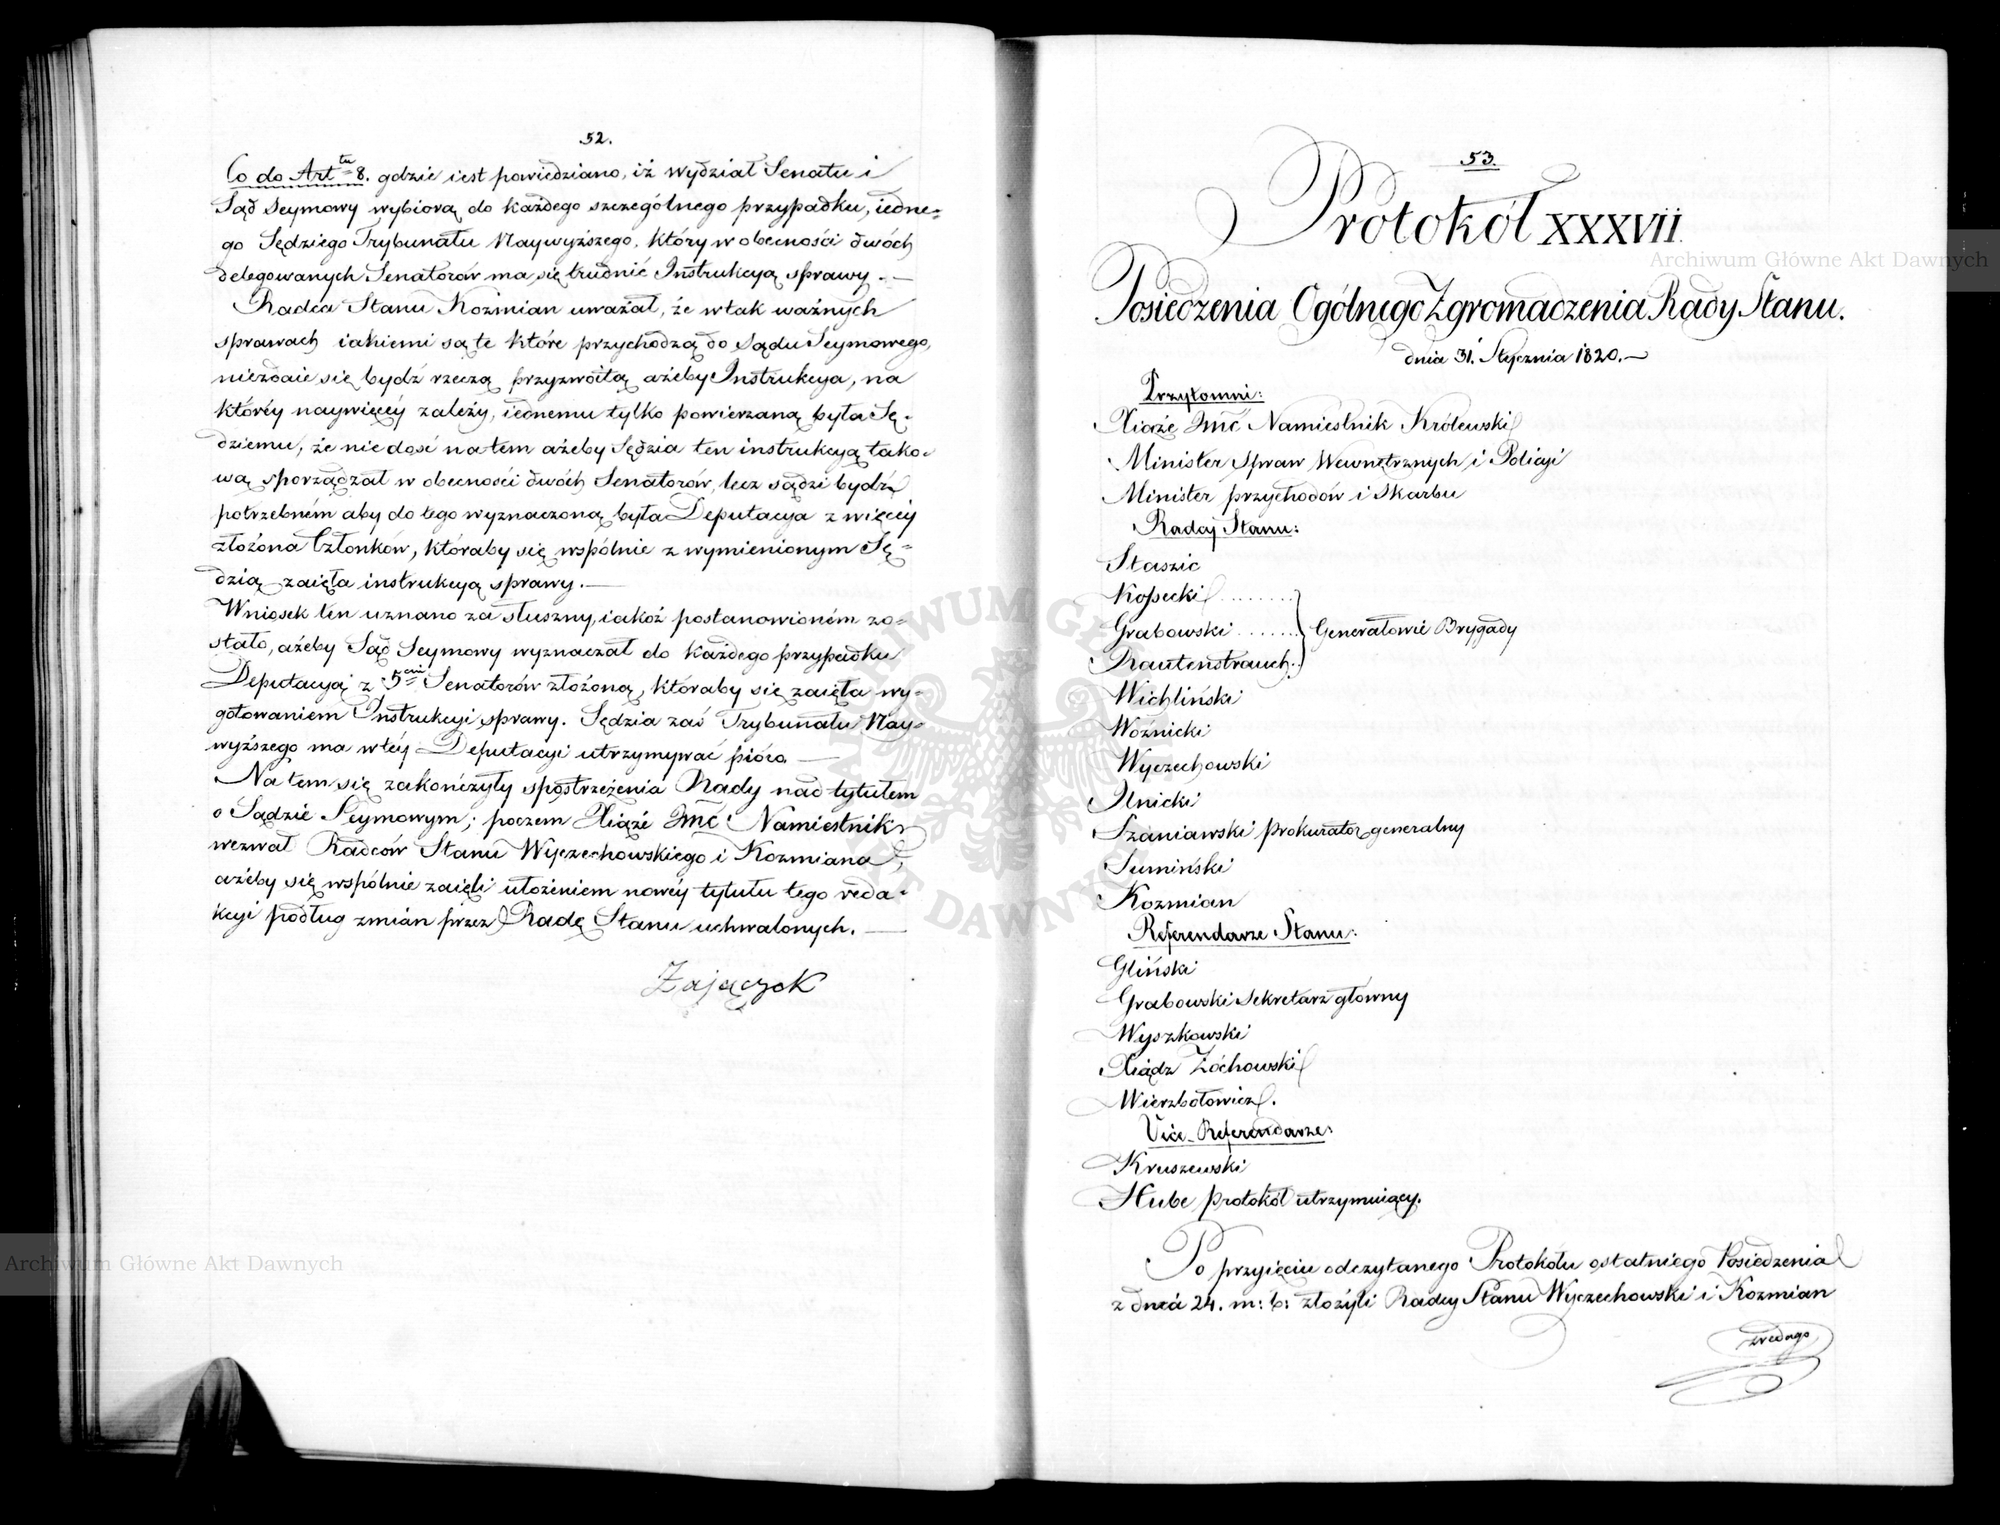 52.
Co do Art<sup>tu</sup> 8. gdzie iest powiedziano, iż wydział Senatu i
Sąd Seymowy wybiorą do każdego szczególnego przypadku, iedne=
go Sędziego Trybunału Naywyższego, który w obecności dwóch
delegowanych Senatorów ma się trudnić Instrukcyą sprawy. —
Radca Stanu Kozmian uważał, że w tak ważnych
sprawach iakiemi są te które przychodzą do Sądu Seymowego,
niezdaie się bydź rzeczą przyzwoitą ażeby Instrukcya, na
któréy naywięcéy zależy, iednemu tylko powierzaną była Sę-
dziemu, że nie dosć na tem ażeby Sędzia ten instrukcyą tako-
wą sporządzał w obecności dwóch Senatorów, lecz sądzi bydź
potrzebném aby do tego wyznaczoną była Deputacya z więcéy
złożona Członków, któraby się wspólnie z wymienionym Sę=
dzią zaięła instrukcyą sprawy. —
Wniosek ten uznano za słuszny, iakoż postanowioném zo=
stało, ażeby Sąd Seymowy wyznaczał do każdego przypadku
Deputacyą z 5<sup>ciu</sup> Senatorów złożoną, któraby się zaięła wy-
gotowaniem Instrukcyi sprawy. Sędzia zaś Trybunału Nay-
wyższego ma w téy Deputacyi utrzymywać pióro. —
Na tem się zakończyły spostrzeżenia Rady nad tytułem
o Sądzie Seymowym; poczem Xiąże Jmć Namiestnik
wezwał Radców Stanu Wyczechowskiego i Kozmiana,
ażeby się wspólnie zaięli ułożeniem nowéy tytułu tego reda-
kcyi podług zmian przez Radę Stanu uchwalonych. —
Zajączek
53.
Protokół XXXVII.
Posiedzenia Ogólnego Zgromadzenia Rady Stanu.
dnia 31. Stycznia 1820. —
Przytomni:
Xiąże Jmć Namiestnik Królewski
Minister Spraw Wewnętrznych i Policyi
Minister przychodów i Skarbu
Radcy Stanu:
Staszic
Kossecki
Grabowski ...... Generałowie Brygady
Rautenstrauch
Wichliński
Woźnicki
Wyczechowski
Ilnicki
Szaniawski Prokurator generalny
Sumiński
Kozmian
Referendarze Stanu:
Gliński
Grabowski Sekretarz główny
Wyszkowski
Xiądz Żóchowski
Wierzbołowicz.
Vice-Referendarze:
Kruszewski
Hube protokół utrzymuiący.
Po przyięciu odczytanego Protokółu ostatniego Posiedzenia
z dnia 24. m: b: złożyli Radcy Stanu Wyczechowski i Kozmian
Archiwum Główne Akt Dawnych
Archiwum Główne Akt Dawnych
ARCHIWUM GŁÓWNE AKT DAWNYCH